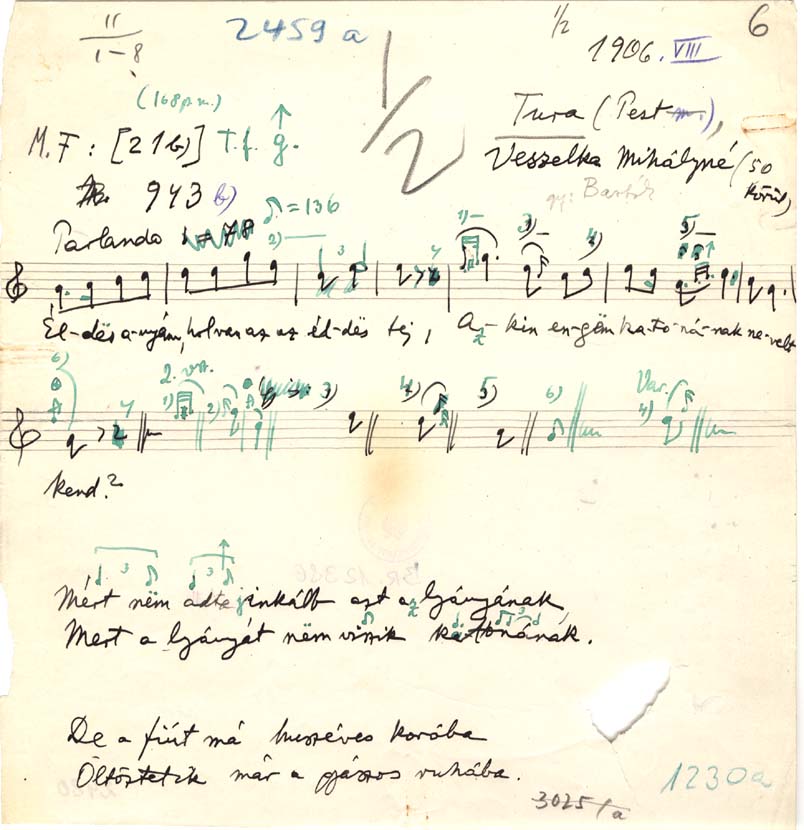 II/1-8
2459a
1/2
1/2
6
1906. VIII
(168 p.m.)
Tura (Pest m.),
M. F : [21b)] T. f. g.
Veszelka Mihályné (50 körül)
943 b)
gy: Bartók
♫ = 136
Parlando = 78
Él-dës a-nyám, hol van az az éd-dës tej, Az-kin en-gëm ka-to-ná-nak ne-velt
2. vsz.
1) 2) 3) 4) 5) 6)
Var.
4)
kend?
Mért nëm adta jinkább azt a lyányának
Mert a lyányát nëm viszik katonának.
De a fiút má huszéves korába
Öltöztetik már a gyászos ruhába.
3025/a
1230a